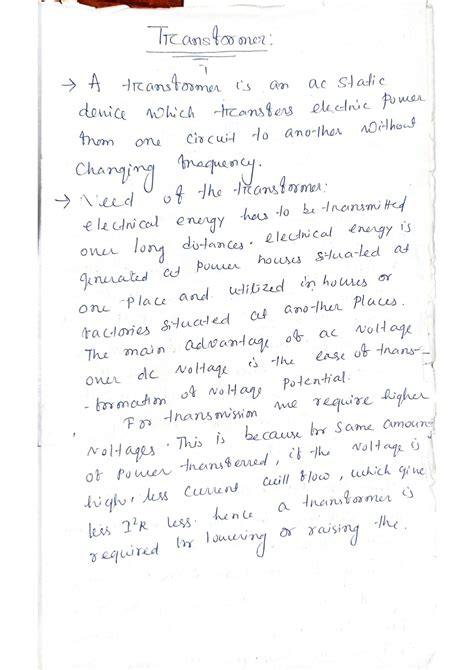 Transformer:
→ A transformer is an ac static
device which transfers electric power
from one circuit to another without
changing frequency.
→ Need of the transformer:
electrical energy has to be transmitted
over long distances. electrical energy is
generated at power houses situated at
one place and utilized in houses or
factories situated at another places.
The main advantage of ac voltage
over dc voltage is the ease of trans-
-formation of voltage potential.
For transmission we require higher
voltages. This is because for same amount
of power transferred, if the voltage is
high, less current will flow, which give
less I²R less. hence a transformer is
required for lowering or raising the